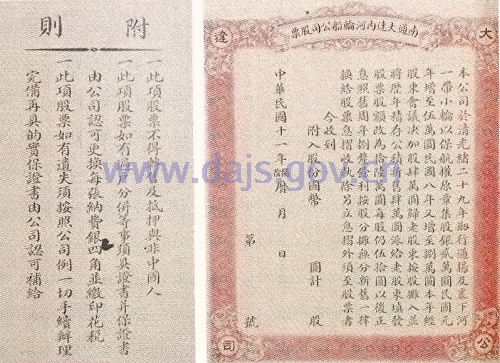 大達公司
南通大達內河輪船公司股票
本公司於清光緒二十九年刱行通揚及裏下河
一帶小輪以保航權原章集股銀貳萬圓民國元
年增至伍萬圓民國八年又增至捌萬圓本年經
股東會議決加股肆萬圓歸老股東按股攤入並
將歷年積存公積新舊肆萬圓派給老股東填發
股票股額改為拾陸萬圓每股仍伍拾圓以後正
息照舊周年捌釐餘利按股分攤無分新舊一律
換給股票息摺收執除另立息摺外須至股票者
今收到
附入股份國幣 圓計 股
中華民國十一年 曆 月 日
第 號
附則
一此項股票不得轉售及抵押與非中國人
一此項股票如有轉售分併等事須具證書并保證書
由公司認可更換每張納費銀四角並繳印花稅
一此項股票如有遺失須按照公司例一切手續辦理
完備再具的實保證書由公司認可補給
www.dajs.gov.cn